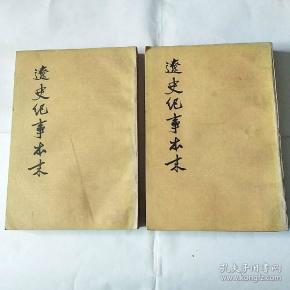 遼史紀事本末
遼史紀事本末
孔夫子旧书网